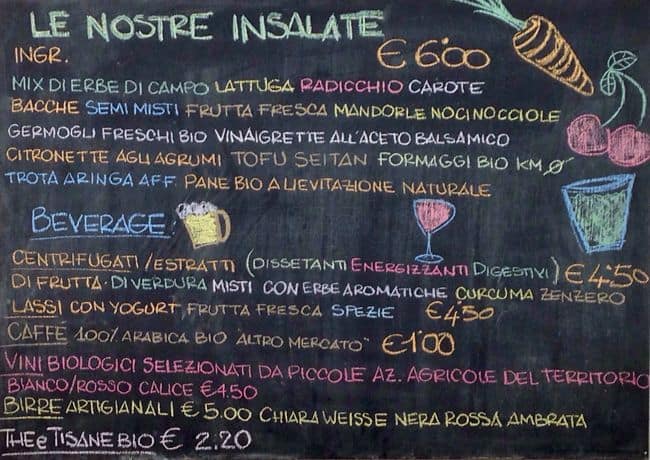 LE NOSTRE INSALATE
INGR. € 6'00
MIX DI ERBE DI CAMPO LATTUGA RADICCHIO CAROTE
BACCHE SEMI MISTI FRUTTA FRESCA MANDORLE NOCI NOCCIOLE
GERMOGLI FRESCHI BIO VINAIGRETTE ALL'ACETO BALSAMICO
CITRONETTE AGLI AGRUMI TOFU SEITAN FORMAGGI BIO KM Ø
TROTA ARINGA AFF. PANE BIO A LIEVITAZIONE NATURALE
BEVERAGE:
CENTRIFUGATI / ESTRATTI (DISSETANTI ENERGIZZANTI DIGESTIVI) € 4'50
DI FRUTTA · DI VERDURA MISTI CON ERBE AROMATICHE CURCUMA ZENZERO
LASSI CON YOGURT FRUTTA FRESCA SPEZIE €4'50
CAFFÈ 100% ARABICA BIO "ALTRO MERCATO" €1'00
VINI BIOLOGICI SELEZIONATI DA PICCOLE AZ. AGRICOLE DEL TERRITORIO
BIANCO/ROSSO CALICE €4.50
BIRRE ARTIGIANALI € 5.00 CHIARA WEISSE NERA ROSSA AMBRATA
THE e TISANE BIO € 2.20